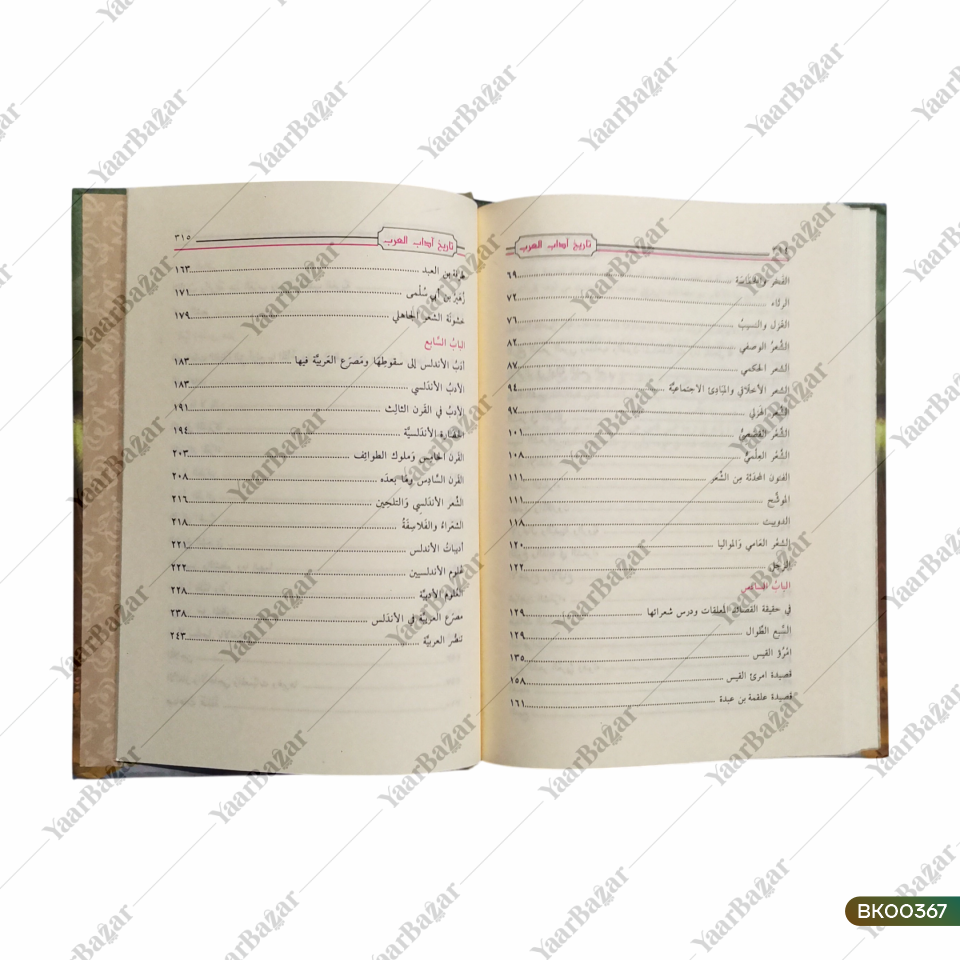 تاريخ آداب العرب
الفخر والحماسة ٦٩
الرثاء ٧٢
الغزل والنسيب ٧٦
الشعر الوصفي ٨٢
الشعر الحكمي ٨٧
الشعر الأخلاقي والمبادئ الاجتماعية ٩٤
الشعر الهزلي ٩٧
الشعر القصصي ١٠١
الشعر العلمي ١٠٨
الفنون المحدثة من الشعر ١١١
الموشح ١١١
الدوبيت ١١٨
الشعر العامي والمواليا ١٢٠
الزجل ١٢٢
الباب السادس
في حقيقة القصائد المعلقات ودرس شعرائها ١٢٩
السبع الطوال ١٢٩
امرؤ القيس ١٣٥
قصيدة امرئ القيس ١٥٨
قصيدة علقمة بن عبدة ١٦١
تاريخ آداب العرب ٣١٥
طرفة بن العبد ١٦٣
زهير بن أبي سلمى ١٧١
خشونة الشعر الجاهلي ١٧٩
الباب السابع
أدب الأندلس إلى سقوطها ومصرع العربية فيها ١٨٣
الأدب الأندلسي ١٨٣
الأدب في القرن الثالث ١٩١
الحضارة الأندلسية ١٩٤
القرن الخامس وملوك الطوائف ٢٠٣
القرن السادس وما بعده ٢٠٨
الشعر الأندلسي والتلحين ٢١٦
الشعراء والفلاسفة ٢١٨
أدبيات الأندلس ٢٢١
علوم الأندلسيين ٢٢٢
العلوم الأدبية ٢٢٨
مصرع العربية في الأندلس ٢٣٨
تنصر العربية ٢٤٣
YaarBazar
BK00367